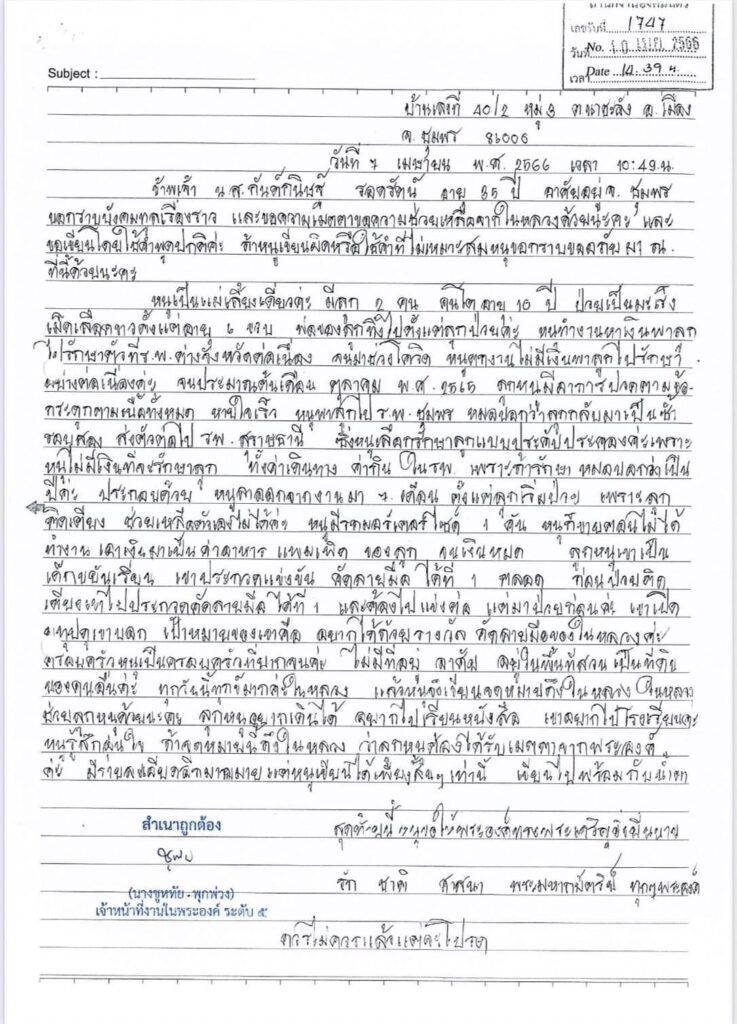 สำนักงานองคมนตรี
เลขรับที่ 1747
วันที่ No. ๑๐ เม.ย. 2566
เวลา Date 14.39 น.
Subject :
บ้านเลขที่ 40/2 หมู่ 3 ต.นาชะอัง อ.เมือง
จ.ชุมพร 86000
วันที่ 7 เมษายน พ.ศ. 2566 เวลา 10:49 น.
ข้าพเจ้า น.ส. กันต์กนิษฐ์ รอดรัตน์ อายุ 35 ปี อาศัยอยู่ จ.ชุมพร
ขอกราบบังคมทูลเรื่องราว และขอความเมตตาขอความช่วยเหลือจากในหลวงด้วยนะคะ และ
ขอเขียนโดยใช้คำพูดปกติค่ะ ถ้าหนูเขียนผิดหรือใช้คำที่ไม่เหมาะสมหนูขอกราบขออภัยมา ณ.
ที่นี้ด้วยนะคะ
หนูเป็นแม่เลี้ยงเดี่ยวค่ะ มีลูก 2 คน คนโตอายุ 10 ปี ป่วยเป็นมะเร็ง
เม็ดเลือดขาวตั้งแต่อายุ 6 ขวบ พ่อของลูกทิ้งไปตั้งแต่ลูกป่วยค่ะ หนูทำงานหาเงินพาลูก
ไปรักษาตัวที่ ร.พ. ต่างจังหวัดต่อเนื่อง จนมาช่วงโควิด หนูตกงานไม่มีเงินพาลูกไปรักษา
อย่างต่อเนื่องค่ะ จนประมาณต้นเดือน ตุลาคม พ.ศ. 2565 ลูกหนูมีอาการปวดตามข้อ
กระดูกตามเนื้อทั้งหมด หายใจเร็ว หนูพาลูกไป ร.พ. ชุมพร หมอบอกว่าลูกกลับมาเป็นซ้ำ
รอบสอง ส่งตัวต่อไป รพ. สุราษธานี ซึ่งหนูเลือกรักษาลูกแบบประคับประคองค่ะเพราะ
หนูไม่มีเงินที่จะรักษาลูก ทั้งค่าเดินทาง ค่ากิน ใน รพ. เพราะถ้ารักษา หมอบอกว่าเป็น
ปีค่ะ ประกอบด้วย หนูลาออกจากงานมา 7 เดือน ตั้งแต่ลูกเริ่มป่วย เพราะลูก
ติดเตียง ช่วยเหลือตัวเองไม่ได้ค่ะ หนูมีรถมอร์เตอร์ไซด์ 1 คัน หนูก็ขายตอนไม่ได้
ทำงาน เอาเงินมาเป็นค่าอาหาร แพมเพิด ของลูก จนเงินหมด ลูกหนูเขาเป็น
เด็กขยันเรียน เขาประกวดแข่งขัน คัดลายมือ ได้ที่ 1 ตลอด ก่อนป่วยติด
เตียงเขาไปประกวดคัดลายมือ ได้ที่ 1 และต้องไปแข่งต่อ แต่มาป่วยก่อนค่ะ เขาเปิด
ยูทูปดูเขาบอก เป้าหมายของเขาคือ อยากได้ถ้วยรางวัล คัดลายมือของในหลวงค่ะ
ครอบครัวหนูเป็นครอบครัวที่ยากจนค่ะ ไม่มีที่อยู่ อาศัย อยู่ในพื้นที่สวนเป็นที่ดิน
ของคนอื่นค่ะ ทุกวันนี้ทุกข์มากค่ะในหลวง แล้วหนูจึงเขียนจดหมายถึงในหลวง ในหลวง
ช่วยลูกหนูด้วยนะคะ ลูกหนูอยากเดินได้ อยากไปเรียนหนังสือ เขาอยากไปโรงเรียนค่ะ
หนูรู้สึกอุ่นใจ ถ้าจดหมายนี้ถึงในหลวง ว่าลูกหนูต้องได้รับเมตตาจากพระองค์
ค่ะ มีรายละเอียดอีกมากมายแต่หนูเขียนได้เพียงสั้นๆ เท่านี้ เขียนไปพร้อมกับน้ำตา
สุดท้ายนี้ หนูขอให้พระองค์ทรงพระเจริญยิ่งยืนนาน
รัก ชาติ ศาสนา พระมหากษัตริย์ ทุกๆพระองค์
ควรไม่ควรแล้วแต่จะโปรด
สำเนาถูกต้อง
(นางชูหทัย พุกพ่วง)
เจ้าหน้าที่งานในพระองค์ ระดับ ๕